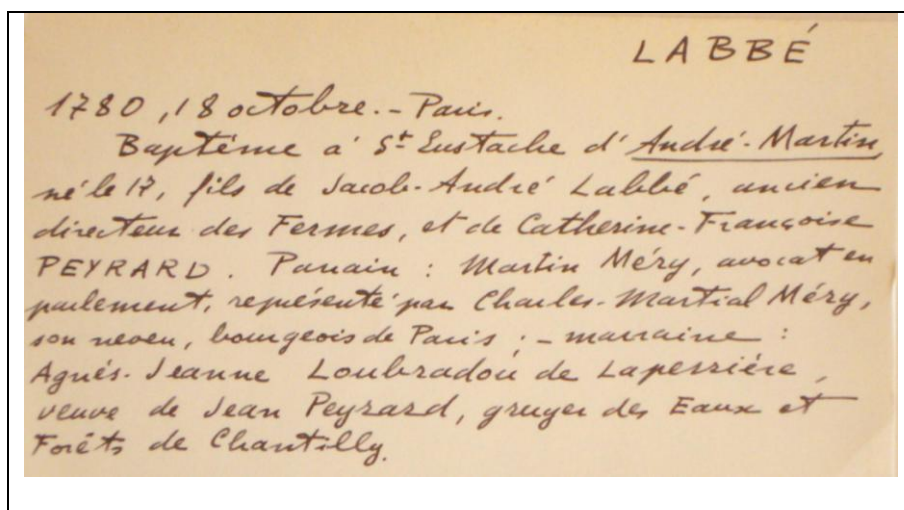 LABBÉ
1780, 18 octobre. - Paris.
Baptême à St Eustache d'André-Martin,
né le 17, fils de Jacob-André Labbé, ancien
directeur des Fermes, et de Catherine-Françoise
PEYRARD. Parrain : Martin Méry, avocat en
parlement, représenté par Charles-Martial Méry,
son neveu, bourgeois de Paris ; - marraine :
Agnès-Jeanne Loubradou de Laperrière,
veuve de Jean Peyrard, gruyer des Eaux et
Forêts de Chantilly.